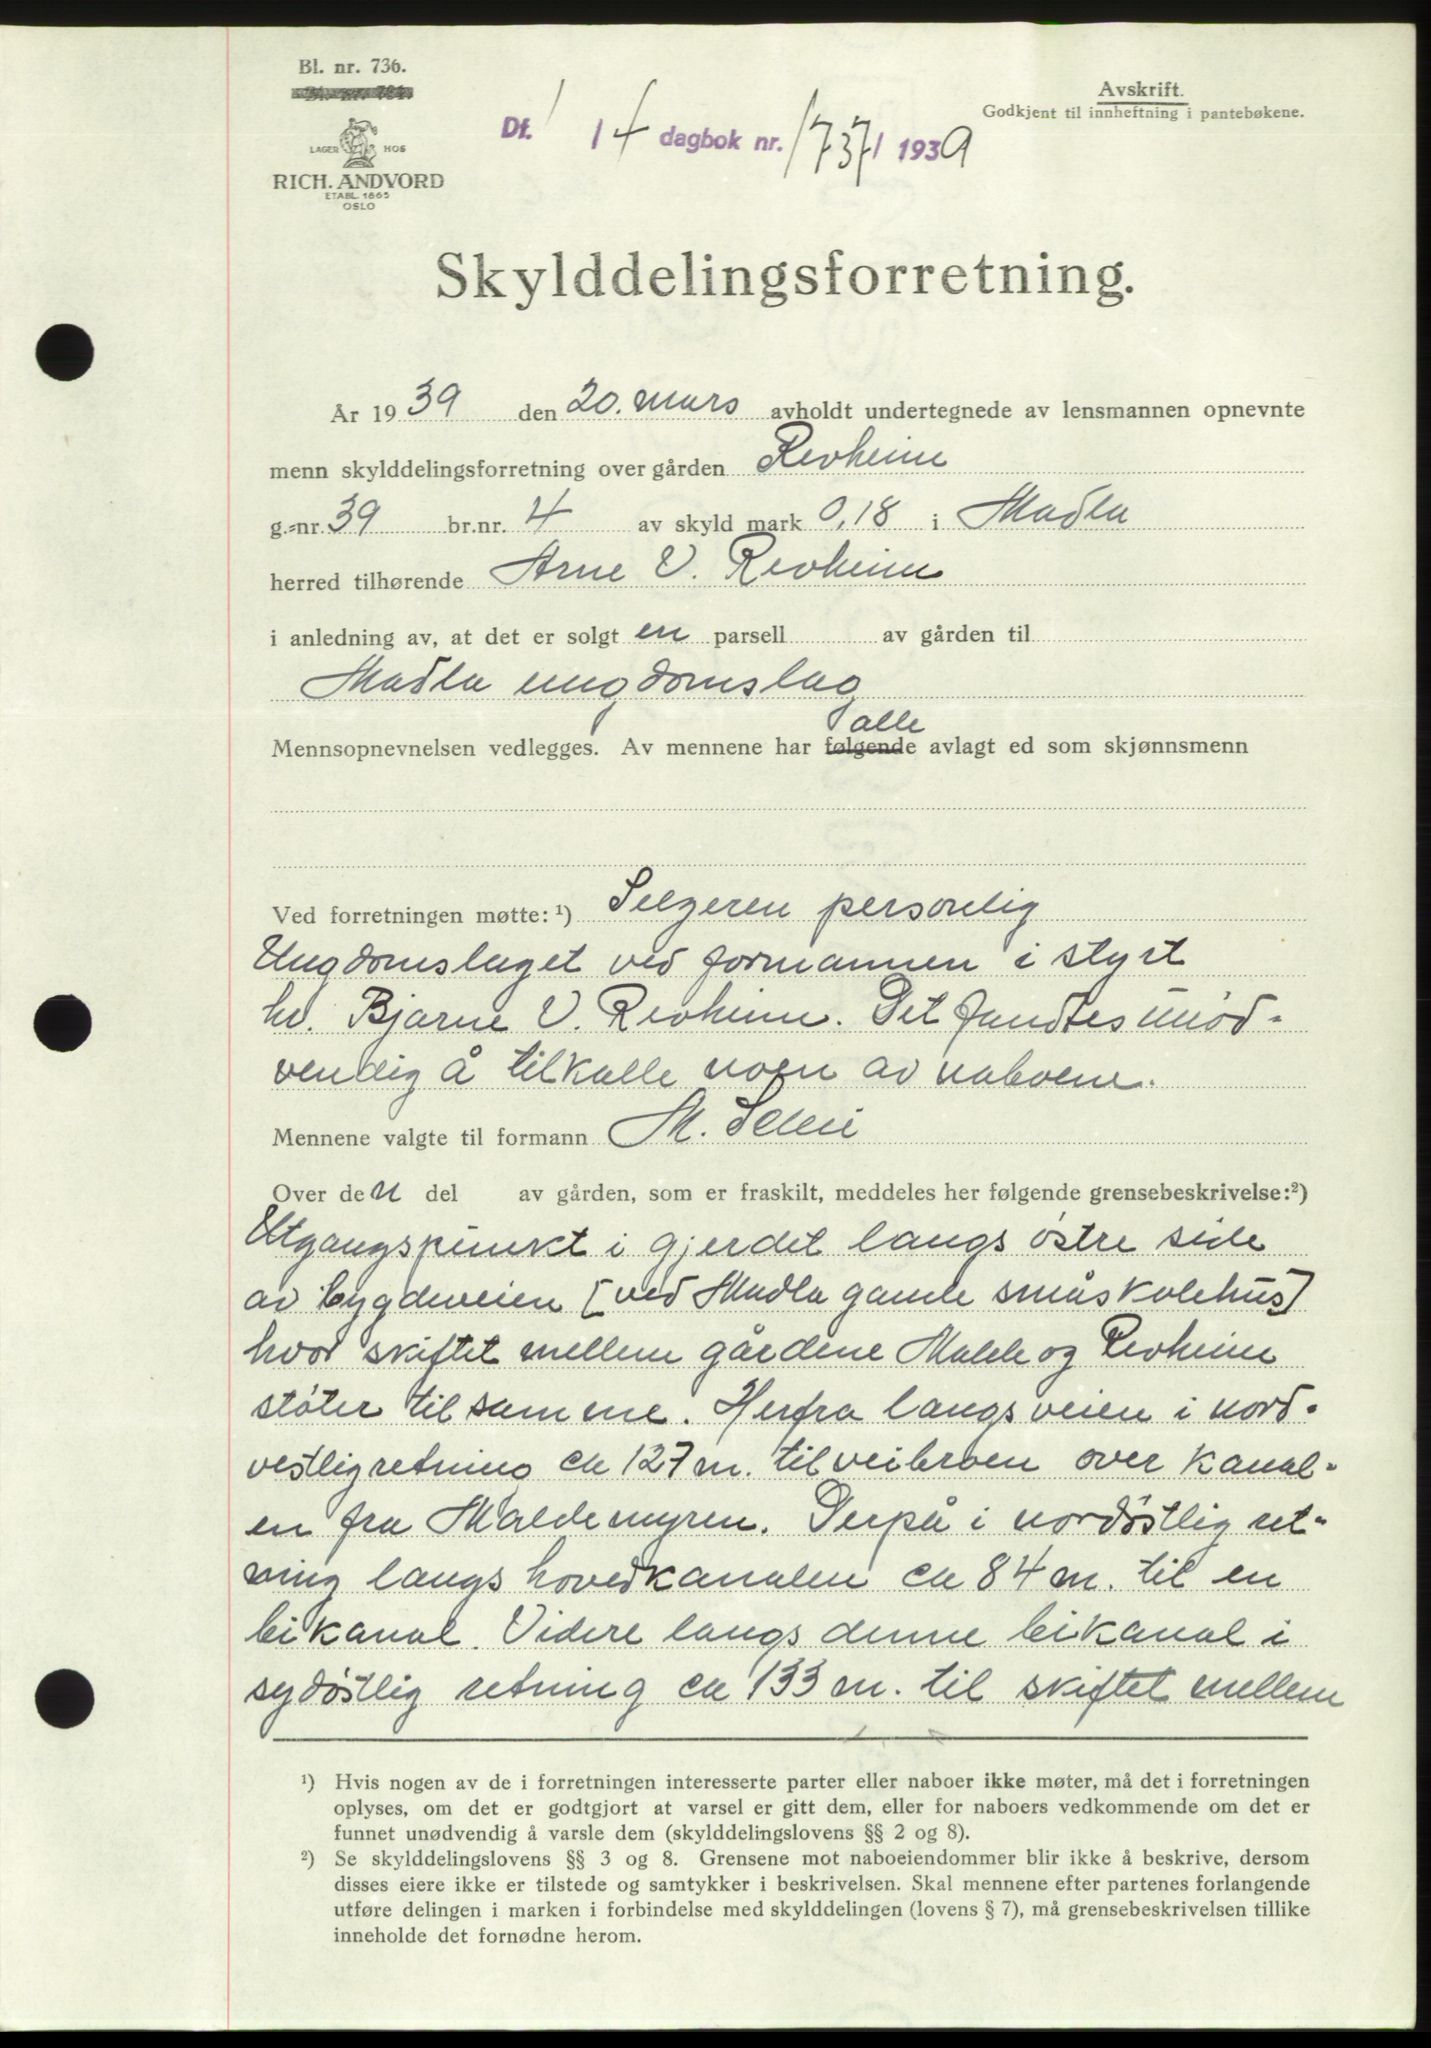 Bl. nr. 736.
LAGER HOS
RICH. ANDVORD
ETABL. 1865
OSLO
Dt. 1/4 dagbok nr. 1737/ 1939
Avskrift.
Godkjent til innheftning i pantebøkene.
Skylddelingsforretning.
År 1939 den 20. mars avholdt undertegnede av lensmannen opnevnte
menn skylddelingsforretning over gården Revheim
g.-nr. 39 br.nr. 4 av skyld mark 0,18 i Madla
herred tilhørende Arne V. Revheim
i anledning av, at det er solgt en parsell av gården til
Madla ungdomslag
alle
Mennsopnevnelsen vedlegges. Av mennene har følgende avlagt ed som skjønnsmenn
Ved forretningen møtte: ¹) Selgeren personlig
Ungdomslaget ved formannen i styret
hr. Bjarne V. Revheim. Det fandtes unød-
vendig å tilkalle noen av naboene.
Mennene valgte til formann M.
Over den del av gården, som er fraskilt, meddeles her følgende grensebeskrivelse:²)
Utgangspunkt i gjerdet langs østre side
av bygdeveien [ved Madla gamle småskolehus]
hvor skiftet mellem gårdene Malde og Revheim
støter til samme. Herfra langs veien i nord-
vestlig retning ca 127 m. til veibroen over kanal-
en fra Maldemyren. Derpå i nordøstlig ret-
ning langs hovedkanalen ca 84 m. til en
bikanal. Videre langs denne bikanal i
sydøstlig retning ca 133 m. til skiftet mellem
¹) Hvis nogen av de i forretningen interesserte parter eller naboer ikke møter, må det i forretningen
oplyses, om det er godtgjort at varsel er gitt dem, eller for naboers vedkommende om det er
funnet unødvendig å varsle dem (skylddelingslovens §§ 2 og 8).
²) Se skylddelingslovens §§ 3 og 8. Grensene mot naboeiendommer blir ikke å beskrive, dersom
disses eiere ikke er tilstede og samtykker i beskrivelsen. Skal mennene efter partenes forlangende
utføre delingen i marken i forbindelse med skylddelingen (lovens § 7), må grensebeskrivelsen tillike
inneholde det fornødne herom.